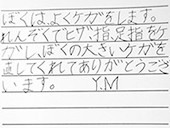 ぼくは、よくケガをします。
れんぞくでヒザ、指、足指をケ
ガし、ぼくの大きいケガを
直してくれてありがとうござ
います。 Y.M